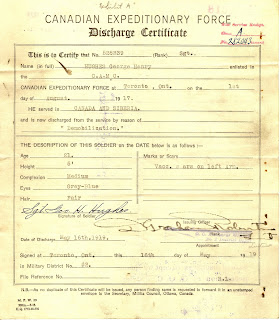 CANADIAN EXPEDITIONARY FORCE
Discharge Certificate
This is to Certify that No. (Rank) Sgt.
Name (in full) HUGHES George Henry enlisted in
the C.A.M.C.
CANADIAN EXPEDITIONARY FORCE at Toronto, Ont. on the 1st
day of August 1917.
HE served in CANADA AND SIBERIA.
and is now discharged from the service by reason of
"Demobilization."
THE DESCRIPTION OF THIS SOLDIER on the DATE below is as follows:
Age 21. Marks or Scars
Height 6' Vacc. scars on left arm.
Complexion Medium
Eyes Gray-Blue
Hair Fair
Sgt Geo. H. Hughes
Signature of Soldier
Issuing Officer
Date of Discharge May 16th, 1919.
Signed at Toronto, Ont. this 16th day of May 1919
in Military District
File Reference No.
N.B.—As no duplicate of this Certificate will be issued, any person finding same is requested to forward it in an unstamped
envelope to the Secretary, Militia Council, Ottawa, Canada.